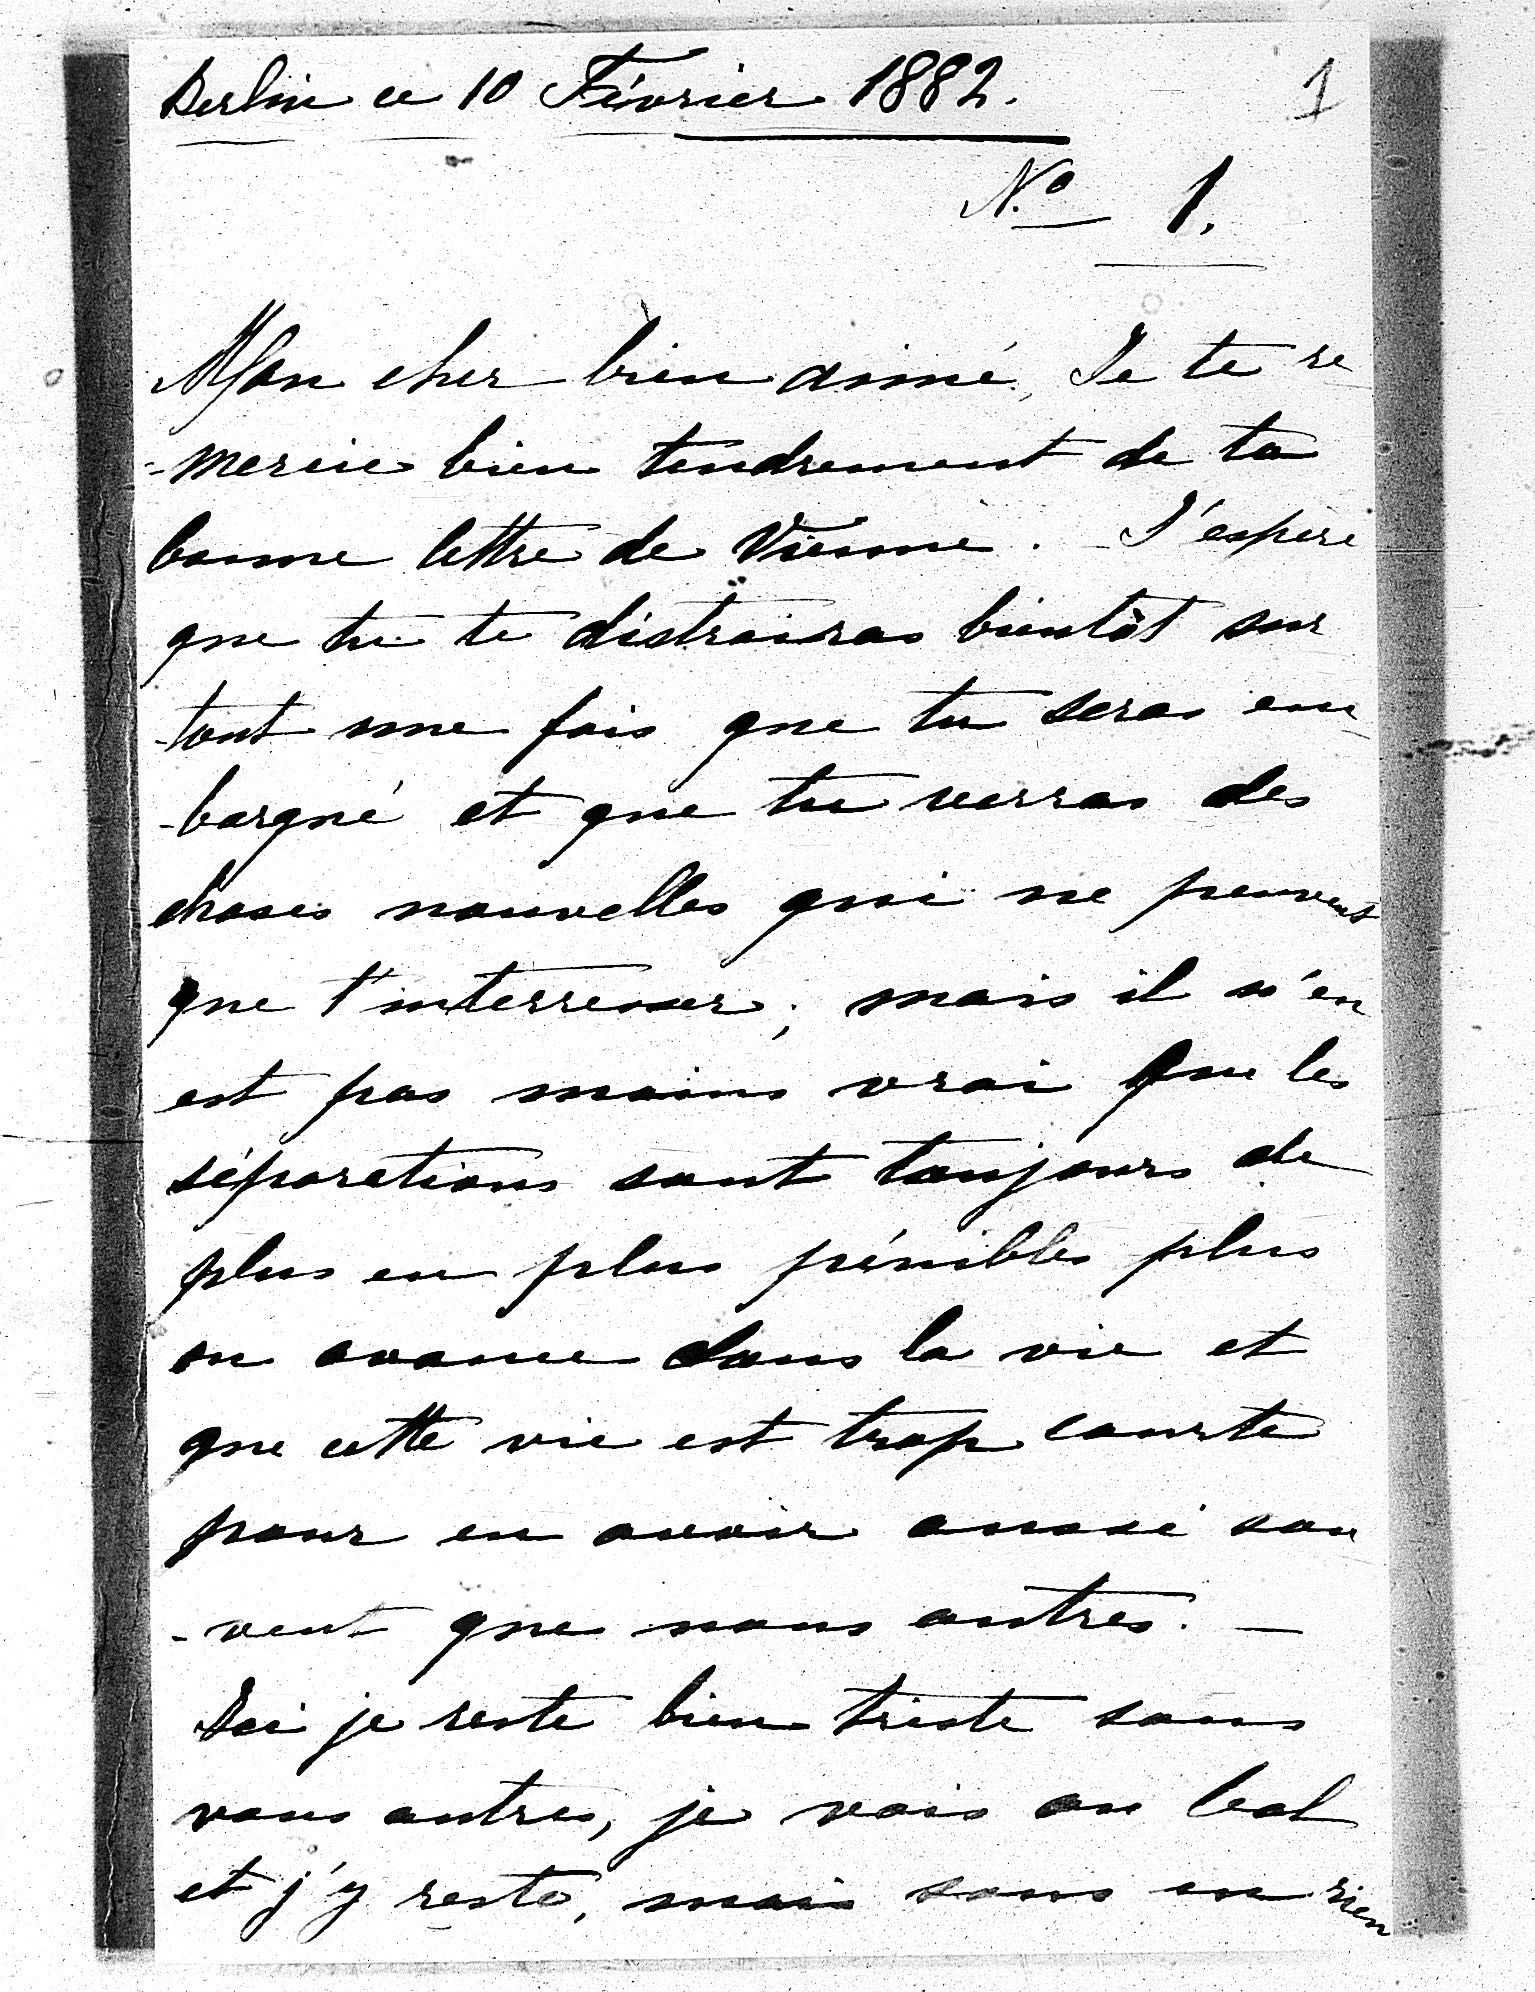 Berlin ce 10 Février 1882.
1
No 1.
Mon cher bien aimé, Je te re
-mercie bien tendrement de ta
bonne lettre de Vienne. J'espère
que tu te distrairas bientôt sur
-tout une fois que tu seras em
-barqué et que tu verras des
choses nouvelles qui ne peuvent
que t'interresser; mais il n'en
est pas moins vrai que les
séparations sont toujours de
plus en plus pénibles plus
on avance dans la vie et
que cette vie est trop courte
pour en avoir aussi sou
-vent que nous autres. —
Ici je reste bien triste sans
vous autres, je vais au bal
et j'y reste, mais sans en rien